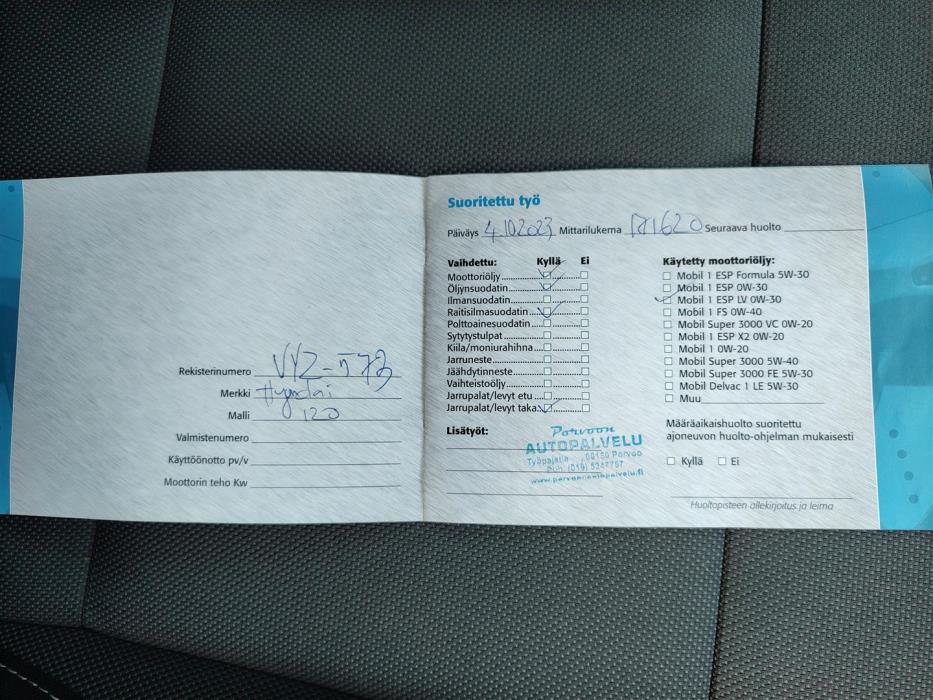 Rekisterinumero VYZ-573
Merkki Hyundai
Malli i20
Valmistenumero
Käyttöönotto pv/v
Moottorin teho Kw
Suoritettu työ
Päiväys 4.10.2023 Mittarilukema 171620 Seuraava huolto
Vaihdettu: Kyllä Ei
Moottoriöljy
Öljynsuodatin
Ilmansuodatin
Raitisilmasuodatin
Polttoainesuodatin
Sytytystulpat
Kiila/moniurahihna
Jarruneste
Jäähdytinneste
Vaihteistoöljy
Jarrupalat/levyt etu
Jarrupalat/levyt taka
Lisätyöt:
Porvoon
AUTOPALVELU
Työpajatie 06150 Porvoo
Puh. (019) 5247767
www.porvoonautopalvelu.fi
Käytetty moottoriöljy:
Mobil 1 ESP Formula 5W-30
Mobil 1 ESP 0W-30
Mobil 1 ESP LV 0W-30
Mobil 1 FS 0W-40
Mobil Super 3000 VC 0W-20
Mobil 1 ESP X2 0W-20
Mobil 1 0W-20
Mobil Super 3000 5W-40
Mobil Super 3000 FE 5W-30
Mobil Delvac 1 LE 5W-30
Muu
Määräaikaishuolto suoritettu
ajoneuvon huolto-ohjelman mukaisesti
Kyllä Ei
Huoltopisteen allekirjoitus ja leima